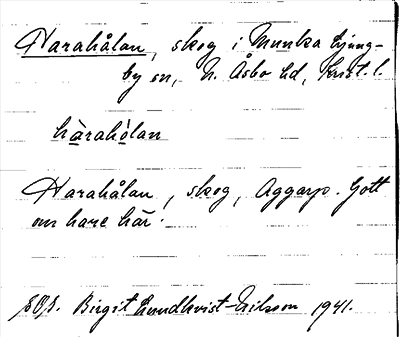 Harahålan, skog i Munka Ljung-
by sn, N. Åsbo hd, Krist. l.
hàrahòlan
Harahålan, skog, Aggarp. Gott
om hare här.
Birgit Lundkvist-Nilsson 1941.